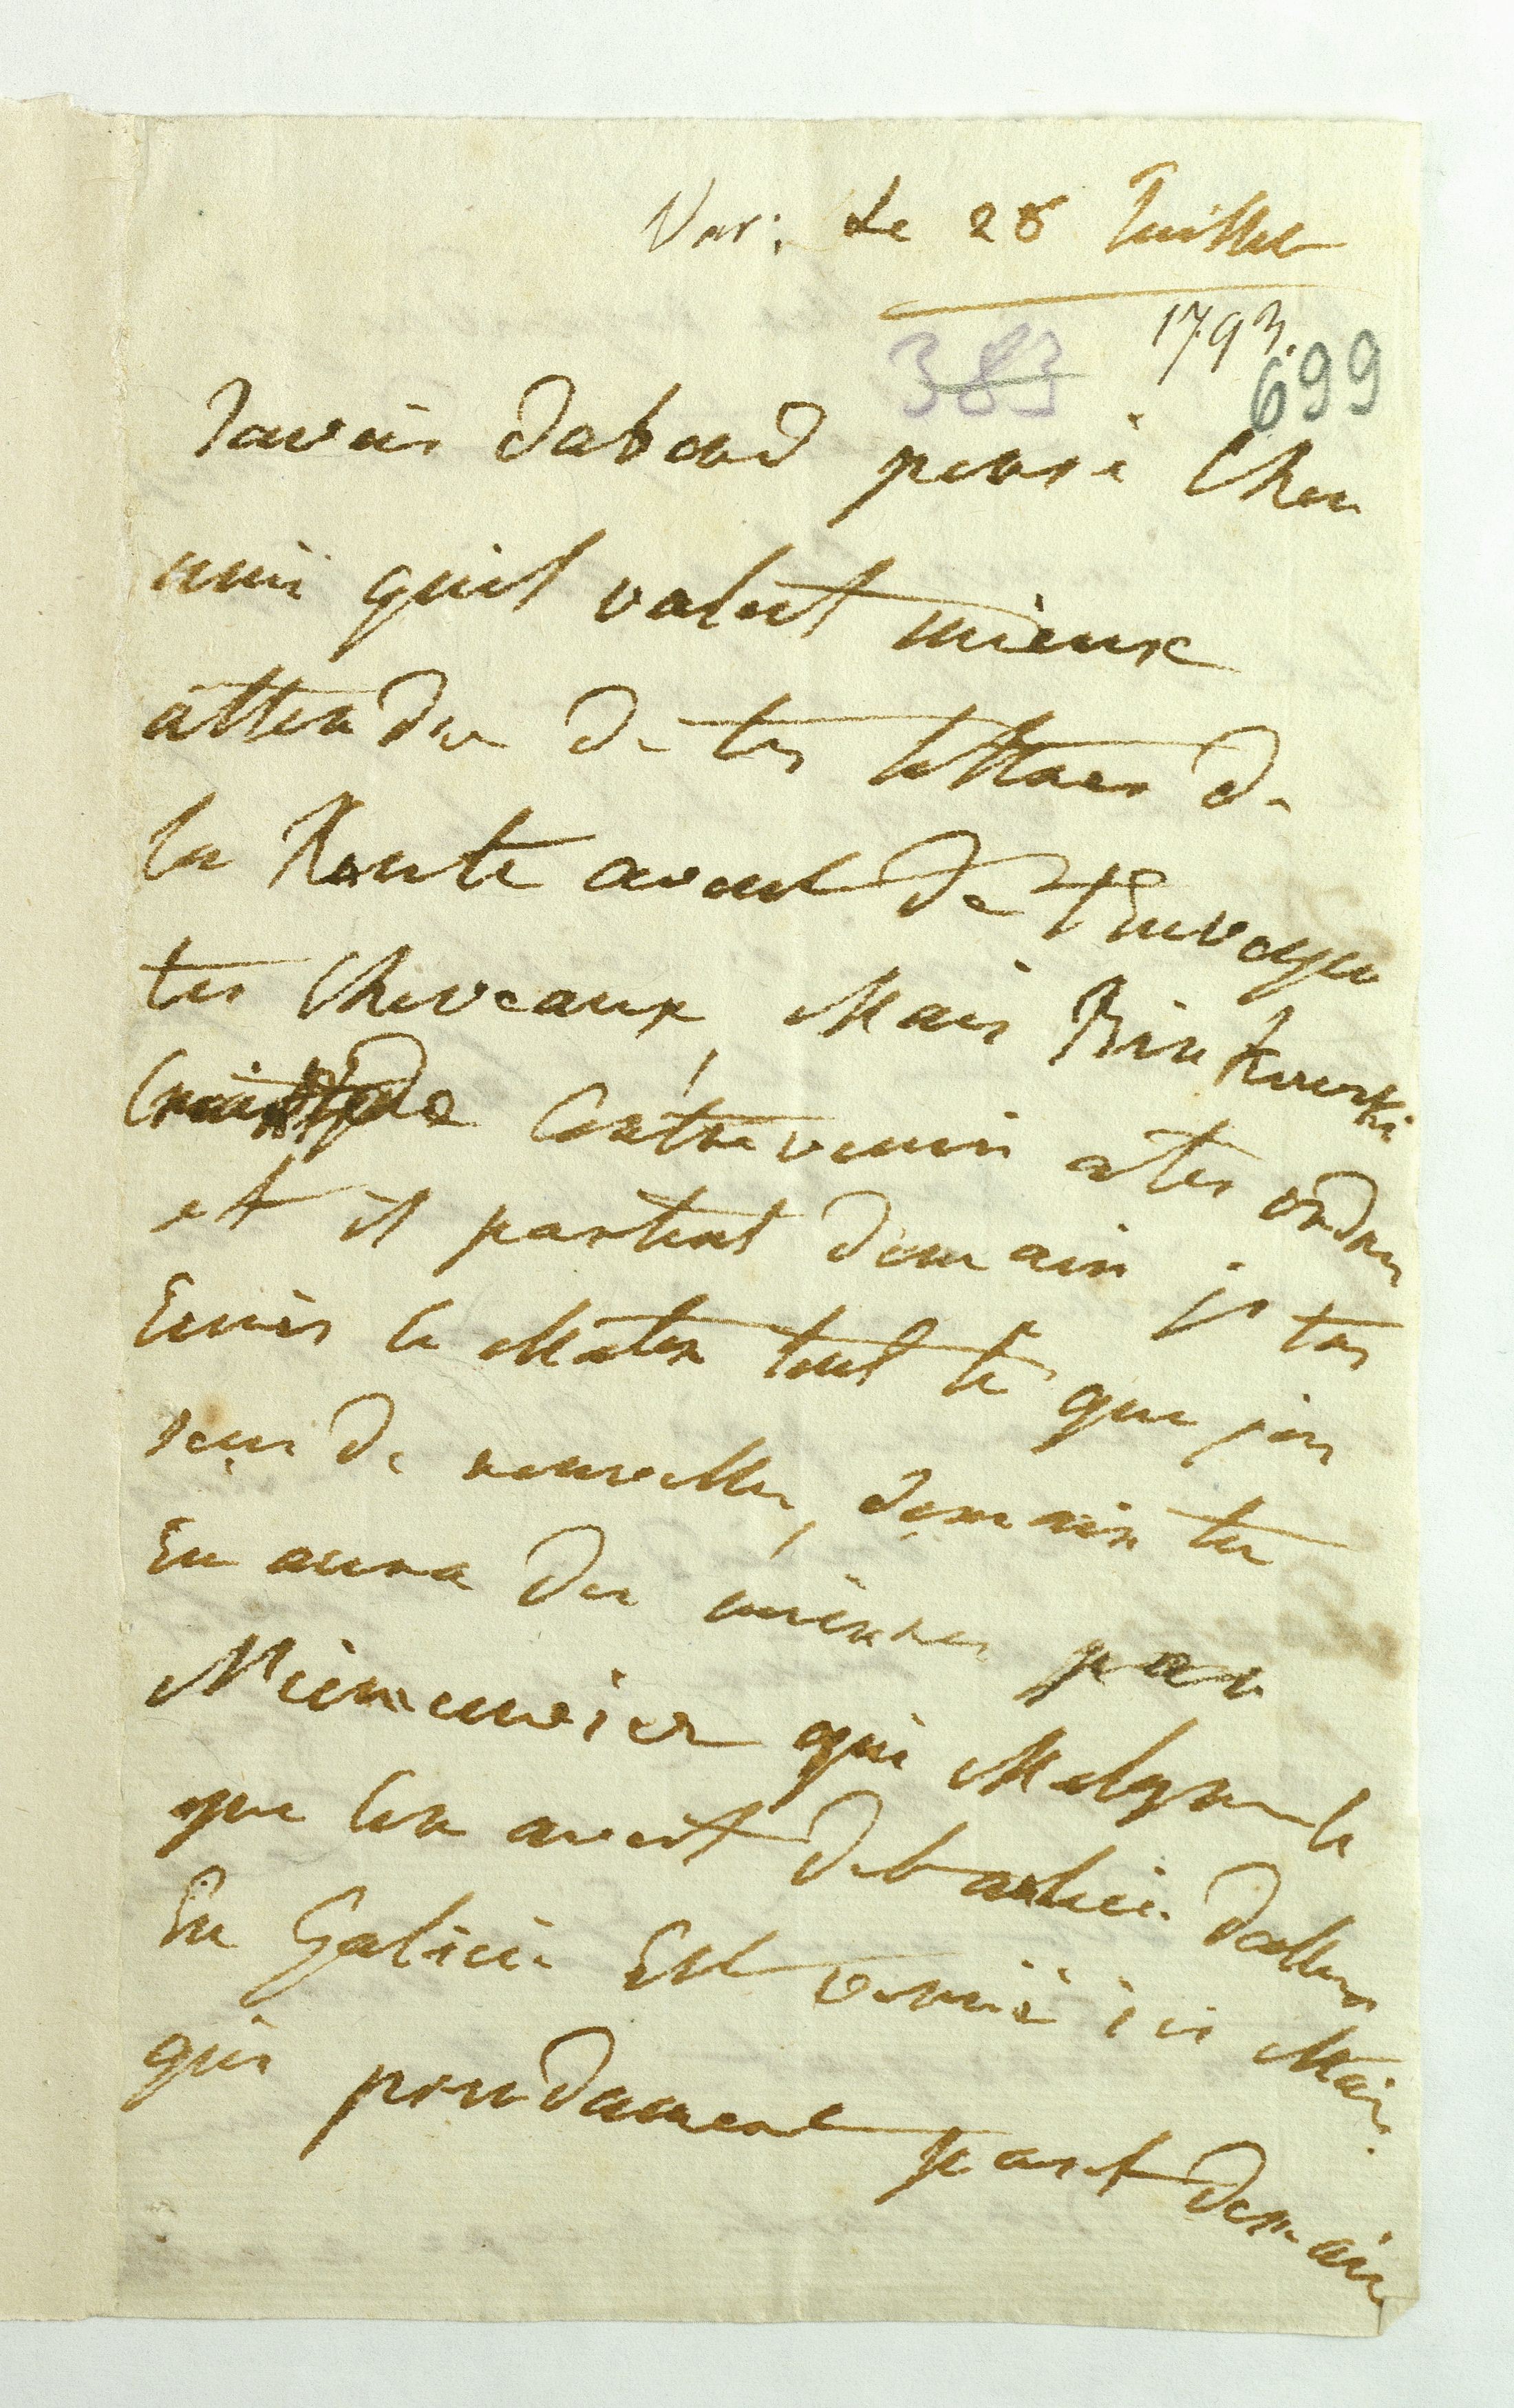 Var: Le 28 Juillet
1793.
383
699
Javais Dabord pensé Cher
ami quil valut mieux
attendre de tes lettres de
la Route avant de t'Envoyer
tes Cheveaux, Mais Binkowski
Contrevenir a tes ordres
et il partent demain, je tes
Ecris ce Matin tout ce que jais
reçus de nouvelles, demain tu
En aura des miennes par
qui Malgre le
que lon avoit Dallers
En Galicie Est venue ici Mais
qui prudament part demain